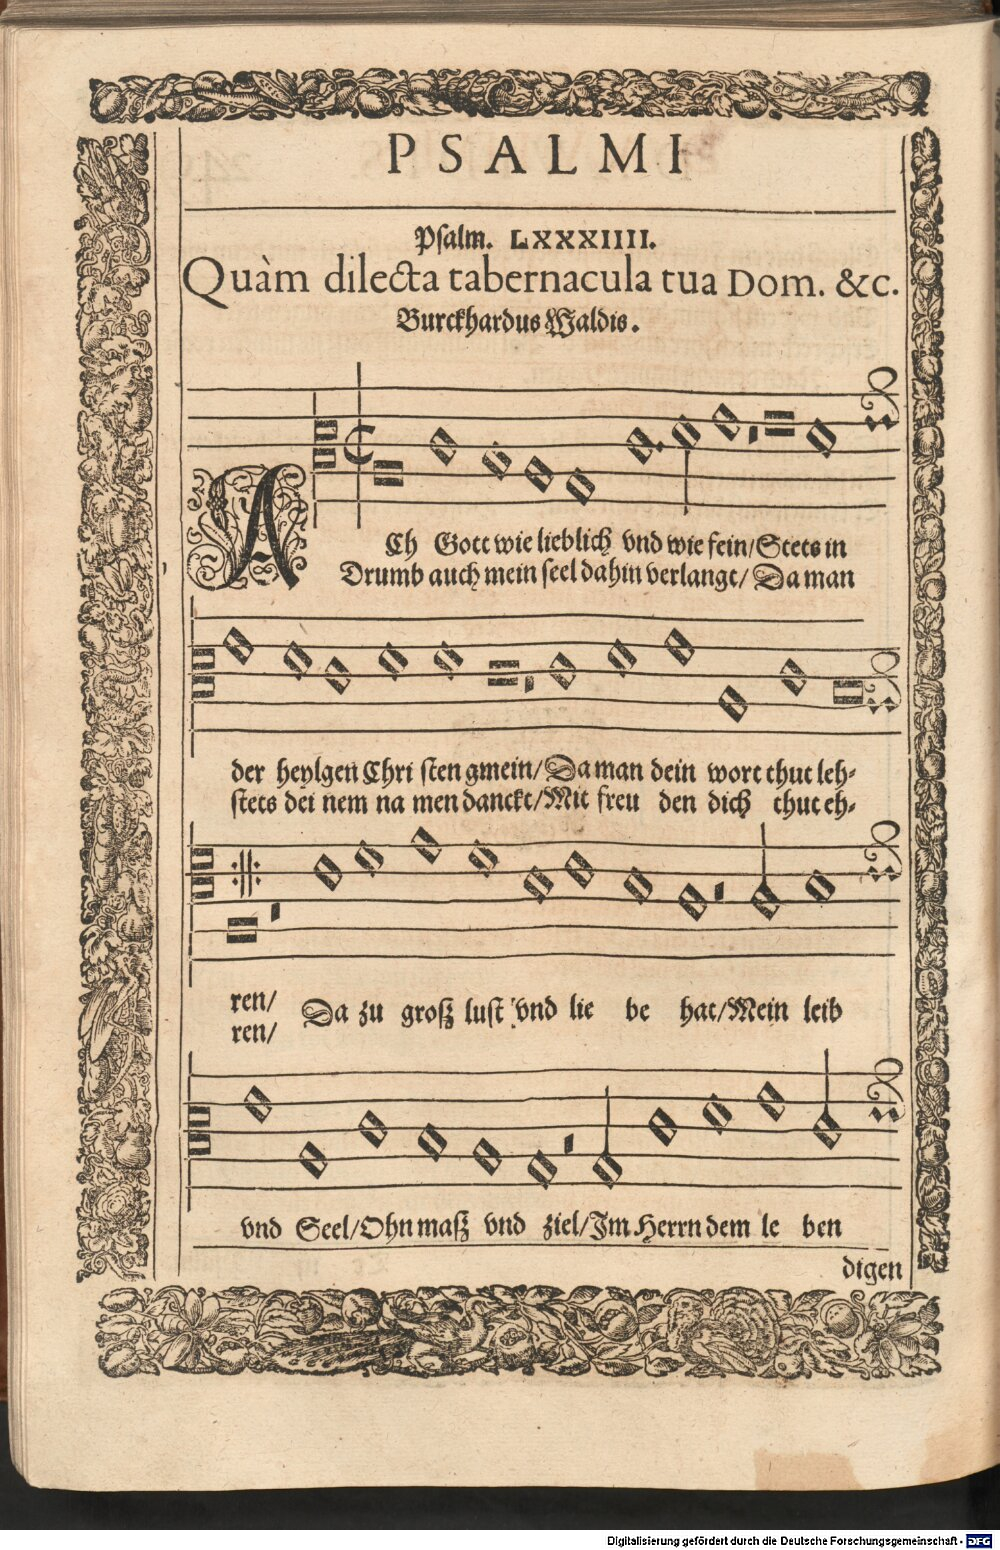 PSALMI
Psalm. LXXXIIII.
Quàm dilecta tabernacula tua Dom. &c.
Burckhardus Waldis.
ACh Gott wie lieblich vnd wie fein/Stets in
Drumb auch mein seel dahin verlangt/Da man
der heylgen Chri sten gmein/Da man dein wort thut leh-
stets dei nem na men danckt/Mit freu den dich thut eh-
ren/ Da zu groß lust vnd lie be hat/Mein leib
ren/
vnd Seel/Ohn maß vnd ziel/Im Herrn dem le ben
digen
Digitalisierung gefördert durch die Deutsche Forschungsgemeinschaft - DFG